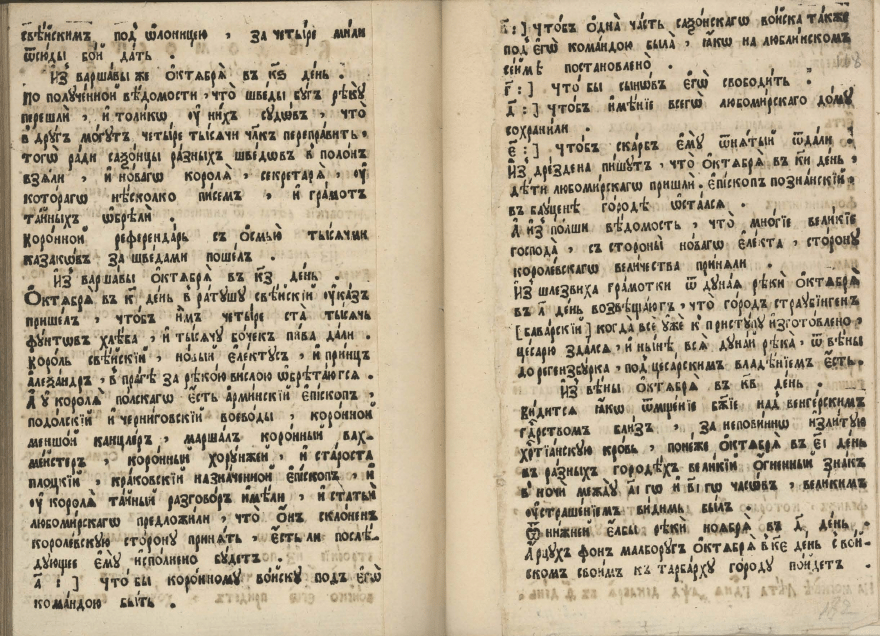 свѣ́йскимъ под̾ ѡ҆лоницею , за четы́ре ми́ли
ѿсю́ды бо́й да́ть .
И҆з̾ варша́вы же ѻ҆ктѧбрѧ̀ въ к҃ѕ де́нь .
По полꙋче́нной вѣ́домости , что̀ шве́ды бꙋгъ рѣ́кꙋ
перешлѝ , и҆ толи́кѡ ᲂу҆ ни́хъ сꙋдѡ́въ , что̀
в̾дрꙋ́гъ мо́гꙋтъ четы́ре ты́сѧчи чл҃къ перепра́вить .
тогѡ̀ ра́ди саѯо́нцы ра́зныхъ шве́дѡвъ в̾ поло́нъ
взѧ́ли , и҆ но́вагѡ королѧ̀ , секретарѧ̀ , ᲂу҆
кото́рагѡ нѣ́сколко пи́семъ , и҆ гра́мотъ
та́йныхъ ѡ҆брѣ́ли .
Коро́нной референда́рь съ ѻ҆смью̀ ты́сѧчми
казакѡ́въ за шве́дами поше́лъ .
И҆з̾ варша́вы ѻ҆ктѧбрѧ̀ въ к҃з де́нь .
Ѻ҆ктѧбрѧ̀ въ к҃ де́нь в̾ ра́тꙋшꙋ свѣ́йскїй ᲂу҆ка́зъ
прише́лъ , что́бъ и҆̀мъ четы́ре ста̀ ты́сѧчь
фꙋ́нтѡвъ хлѣ́ба , и҆ ты́сѧчꙋ бо́чекъ пи́ва да́ли .
Коро́ль свѣ́йскїй , но́вый є҆ле́ктꙋсъ , и҆ при́нцъ
а҆леѯа́ндръ , в̾ пра́гѣ за рѣко́ю ви́слою ѡ҆брѣта́ютсѧ .
А҆ ᲂу҆ королѧ̀ по́лскагѡ є҆́сть а҆рми́нскїй є҆пⷭ҇копъ ,
подо́лскїй и҆ черни́говскїй воево́ды , коро́нной
меншо́й ка́нцлеръ , ма́ршалъ коро́нный вах-
ме́йстеръ , коро́нный хорꙋ́нжей , и҆ ста́роста
пло́цкїй , кра́ковскїй назначе́нной є҆пі́скопъ , и҆
ᲂу҆ королѧ̀ та́йный разгово́ръ и҆мѣ́ли , и҆ статьѝ
любоми́рскагѡ предложи́ли , что̀ ѻ҆́нъ скло́ненъ
короле́вскꙋю сто́ронꙋ приня́ть , є҆́сть ли послѣ́-
дꙋющее є҆мꙋ̀ и҆спо́лнено бꙋ́детъ
а҃ : ] что́ бы коро́нномꙋ во́йскꙋ под̾ є҆гѡ̀
кома́ндою бы́ть .
в҃ : ] что́бъ ѻ҆дна̀ ча́сть саѯо́нскагѡ во́йска та́кже
под̾ є҆гѡ̀ кома́ндою была̀ , ꙗ҆́кѡ на люблі́нскомъ
се́ймѣ постановлено̀ .
г҃ : ] что́ бы сынѡ́въ є҆гѡ̀ свободи́ть .
д҃ : ] что́бъ и҆мѣ́нїе всегѡ̀ любоми́рскагѡ до́мꙋ
сохрани́ли .
є҃ : ] что́бъ ска́рбъ є҆мꙋ̀ ѿня́тый ѿда́ли .
И҆з̾ дре́здена пи́шꙋтъ , что̀ ѻ҆ктѧбрѧ̀ въ к҃и де́нь ,
дѣ́ти любоми́рскагѡ пришлѝ . є҆пі́скопъ позна́нскїй .
въ баꙋце́нѣ го́родѣ ѡ҆ста́лсѧ .
А҆ и҆з̾ по́лши вѣ́домость , что̀ мно́гїе вели́кїе
господа̀ , съ стороны̀ но́вагѡ є҆ле́кта , сто́ронꙋ
короле́вскагѡ вели́чества при́няли .
И҆з̾ шле́звиха гра́мотки ѿ дꙋна́ѧ рѣкѝ ѻ҆ктѧбрѧ̀
въ л҃ де́нь возвѣща́ютъ , что̀ го́родъ страꙋби́нгенъ
[ бава́рскїй ] когда̀ всѐ ᲂу҆жѐ к̾ при́стꙋпꙋ и҆згото́влено ,
це́сарю зда́лсѧ , и҆ ны́нѣ всѧ̀ дꙋна́й рѣка̀ , ѿ вѣ́ны
до регензбꙋ́рка , под̾ це́сарскимъ владѣ́нїемъ є҆́сть .
И҆з̾ вѣ́ны ѻ҆ктѧбрѧ̀ въ к҃в де́нь .
Ви́дитсѧ ꙗ҆́кѡ ѿмще́нїе бж҃їе над̾ венге́рскимъ
гдⷭ҇рствомъ бли́зъ , за непови́ннꙋ и҆зли́тꙋю
хрⷭ҇тїа́нскꙋю кро́вь , поне́же ѻ҆ктѧбрѧ̀ въ є҃і де́нь
въ ра́зныхъ городѣ́хъ вели́кїй ѻ҆́гненный зна́къ
в̾ ночѝ ме́ждꙋ а҃і гѡ и҆ в҃і гѡ часѡ́въ , вели́кимъ
ᲂу҆страше́нїемъ ви́димь бы́лъ .
Ѿ ни́жней є҆́лбы рѣкѝ ноѧбрѧ̀ въ д҃ де́нь .
А҆рцꙋ́хъ фонъ ма́лборꙋгъ ѻ҆ктѧбрѧ̀ в̾ к҃є де́нь с̾ вой-
скомъ свои́мъ къ тарба́рхꙋ го́родꙋ по́йдетъ .